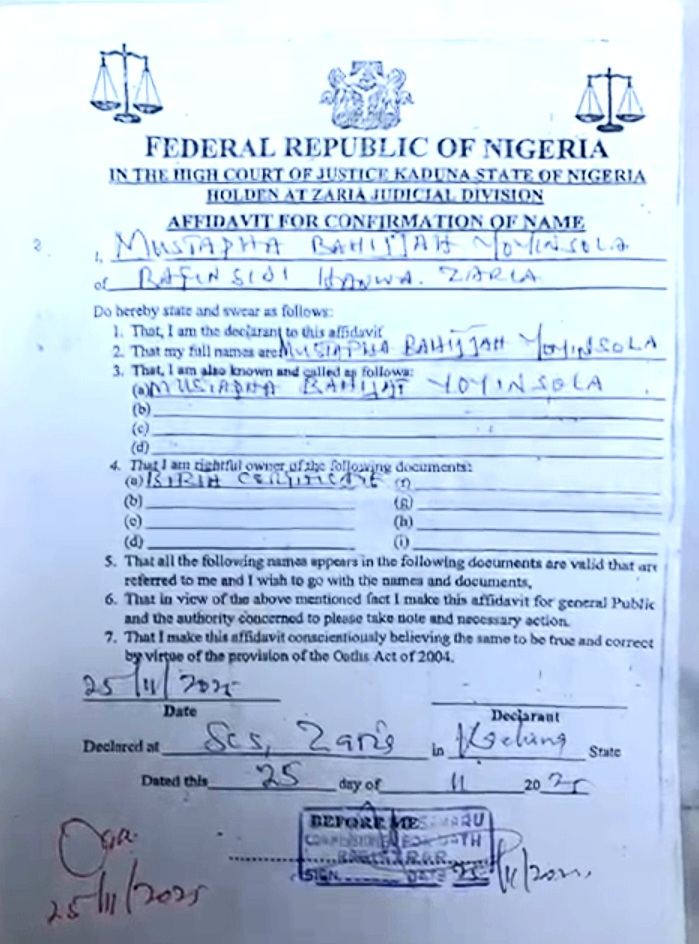 FEDERAL REPUBLIC OF NIGERIA
IN THE HIGH COURT OF JUSTICE KADUNA STATE OF NIGERIA
HOLDEN AT ZARIA JUDICIAL DIVISION
AFFIDAVIT FOR CONFIRMATION OF NAME
I, MUSTAPHA BAHIJJAH YOYINSOLA
of HANWA. ZARIA
Do hereby state and swear as follows:
1. That, I am the declarant to this affidavit
2. That my full names are MUSTAPHA BAHIJJAH YOYINSOLA
3. That, I am also known and called as follows:
(a) MUSTAPHA BAHIJAT YOYINSOLA
(b)
(c)
(d)
4. That I am rightful owner of the following documents:
(a) BIRTH CERTIFICATE (f)
(b) (g)
(c) (h)
(d) (i)
5. That all the following names appears in the following documents are valid that are
referred to me and I wish to go with the names and documents.
6. That in view of the above mentioned fact I make this affidavit for general Public
and the authority concerned to please take note and necessary action.
7. That I make this affidavit conscientiously believing the same to be true and correct
by virtue of the provision of the Oaths Act of 2004.
25/11/2025
Date Declarant
Declared at Zaria in Kaduna State
Dated this 25 day of 11 2025
BEFORE ME
REGISTRAR
SIGN DATE 25/11/2025
25/11/2025